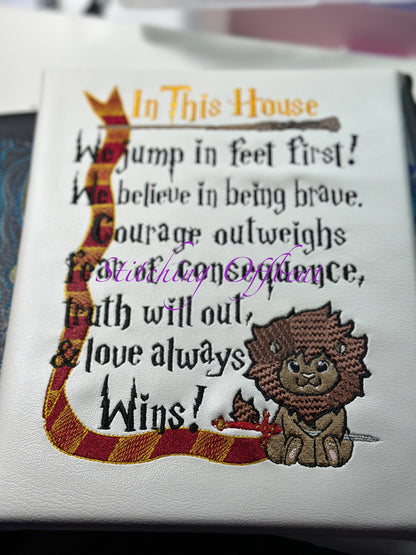 In This House
We jump in feet first!
We believe in being brave.
Courage outweighs
fear of consequence,
truth will out,
& love always
Wins!